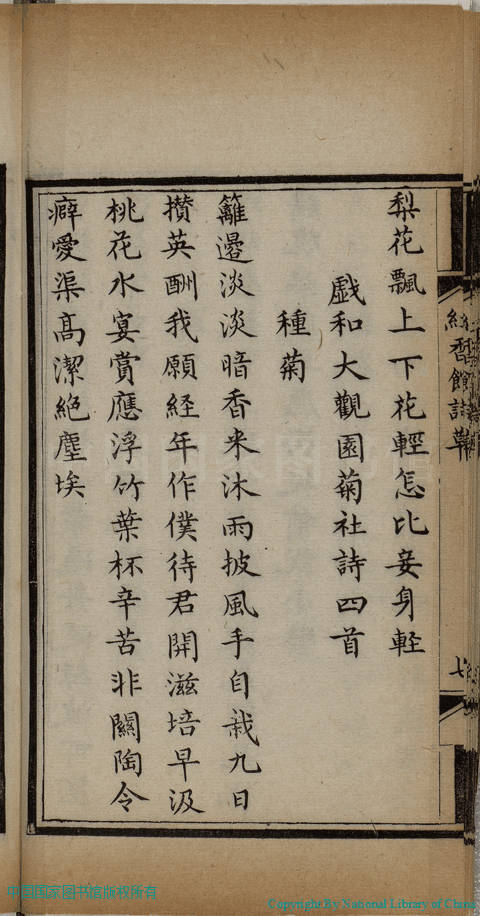 梨花飄上下花輕怎比妾身輕
戲和大觀園菊社詩四首
種菊
籬邊淡淡暗香来沐雨披風手自栽九日
攢英酬我願経年作僕待君開滋培早汲
桃花水宴賞應浮竹葉杯辛苦非關陶令
癖愛渠高潔絕塵埃
七
中国国家图书馆版权所有
Copyright By National Library of China